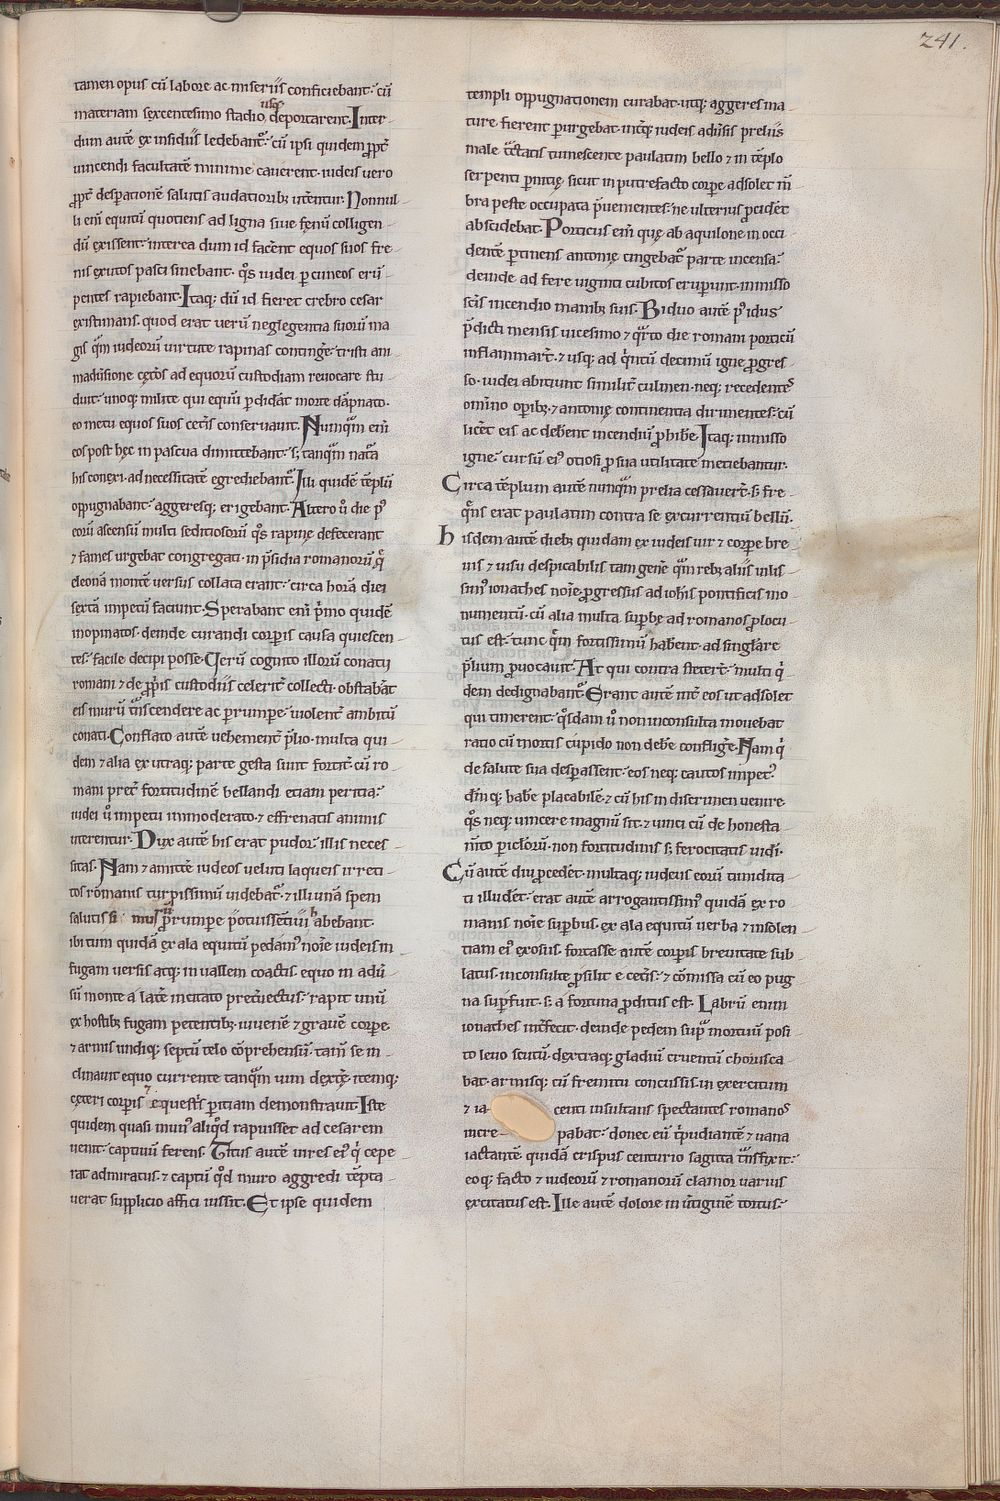 241.
tamen opus cū labore ac miseriis conficiebant· cū
materiam sexcentesimo stadio usq; deportarent. Inter-
dum autē ex insidiis ledebant᷑· cū ipsi quidem ꝓpt᷑
uincendi facultatē minime cauerent· iudeis uero
ꝓpt᷑ despationē salutis audatiorib; ut᷑entur. Nonnul
li eni᷑ equitū quotiens ad ligna siue fęnū colligen-
dū exissent· interea dum id facer̄ent equos suos fre-
nis exutos pasci sinebant· q̄s iudei ꝑ cuneos erū-
pentes rapiebant. Itaq; dū id fieret crebro cesar
existimans· quod erat uerū neglegentia suorū ma
gis q̄m iudeorū uirtute rapinas conting̅e· tristi ani
maduersione cęt᷑os ad equorū custodiam reuocare stu
duit· unoq; milite qui equū ꝑdid̅at morte dāpnato·
eo metu equos suos cet᷑is conseruauit. Nunq̄m eni᷑
eos post hęc in pascua dimittebant· s; tanq̄m nat᷑a
his conexi· ad necessitatē egrediebant᷑. Illi quidē tēplū
oppugnabant· aggeresq; erigebant. Altero ū die p᷒
eorū ascensū multi seditiosorū q̄s rapinę defecerant
⁊ fames urgebat congregati· in p̄sidia romanorū q̨
eleonā montē uersus collata erant· circa horā diei
sextā impetū faciunt. Sperabant eni᷑ p̄mo quidē
inopinatos· deinde curandi corꝑis causa quiescen-
tes· facile decipi posse. Ceterū cognito illorū conatu
romani ⁊ de ꝓpis custodiis celerit᷑ collecti· obstabāt
eis murū t̄nscendere ac ꝑrumpe᷑ uiolent᷑ ambitū
conati. Conflato autē uehement᷑ p̄lio· multa qui-
dem ⁊ alia ex utraq; parte gesta sunt fortit᷑· cū ro-
mani pret᷑ fortitudinē bellandi etiam peritia·
iudei ū impetu immoderato· ⁊ effrenatis animis
uterentur. Dux autē his erat pudor· illis neces
sitas. Nam ⁊ amitt᷑e iudeos veluti laqueis irreti
tos romanis turpissimū uidebat᷑· ⁊ illi unā spem
salutis si murū ꝑrumpe᷑ potuissent habebant·
ibi tum quidā ex ala equitū pedani᷒ noīe iudeis in
fugam uersis atq; in uallem coactis· equo in adū
sū monte a lat᷑e incitato pret᷑uectus· rapit unū
ex hostib; fugam petentib; iuuenē ⁊ grauē corpe᷑
⁊ armis undiq; septū telo cōprehensū· tam̄ se in-
clinauit equo currente tanq̄m uim dext᷑ę· itemq;
cęteri corꝑis ⁊ equest᷑s ꝑitiam demonstrauit. Iste
quidem quasi mun᷒ aliq̄d rapuisset ad cesarem
uenit· captiuū ferens. Titus autē uires ei᷒ q̄ cepe
rat admiratus· ⁊ captū q̄d muro aggredi tēpta-
uerat supplicio affici iussit. Et ipse quidem
templi oppugnationem curabat· utq; aggeres ma-
ture fierent ꝑurgebat· int᷑eq; iudeis adūsis preliis
male t᷑ctatis tumescente paulatim bello ⁊ in tēplo
serpenti ꝑnitię· sicut in putrefacto corpe᷑ adsolet m̄
bra peste occupata p̄uenientes· ne ulterius ꝓcidet᷑
abscidebat. Porticus eni᷑ quę ab aquilone in occi
dentē ꝑtinens antonię cingebat᷑ parte incensa·
deinde ad fere uiginti cubitos erupunt· immisso
sc̄is incendio manib; suis. Biduo autē p᷒ idus
p̄dicti mensis uicesimo ⁊ q̄rto die romani porticū
inflammar̄t· ⁊ usq; ad q̄ntū decimū igne ꝓgres-
so· iudei abiciunt similit᷑ culmen· neq; recedentes
omīno opib;· ⁊ antonię continentia dirimentes· cū
licer̄et eis ac debent incendiū ꝓhibe᷑. Itaq; immisso
igne· cursū ei᷒ otiosi ꝓ sua utilitate metiebantur·
Circa tēplum autē nunq̄m prelia cessauer̄t· s; fre-
q̄ns erat paulatim contra se excurrentiū bellū.
hisdem autē dieb; quidam ex iudeis uir ⁊ corpe᷑ bre
uis ⁊ uisu despicabilis tam gene᷑ q̄m reb; aliis uilis
sim᷒ ionathes noīe ꝓgressus ad iohis pontificis mo
numentū· cū alia multa supbe᷑ ad romanos ꝓlocu
tus est· tunc q̄m fortissimū habent· ad singlare
p̄lium ꝓuocauit. At qui contra steter̄t· multi q̄
dem dedignabant᷑. Erant autē int᷑ eos ut adsolet
qui timerent· q̄sdam ū non inconsulta mouebat
ratio cū mortis cupido non debe᷑ conflige᷑. Nam q̄
de salute sua despassent· eos neq; cautos impet᷒
dīnq; habe᷑ placabilē· ⁊ cū his in discrimen uenire·
q̄s neq; uincere magnū sit· ⁊ uinci cū de honesta
m̄to piclorū· non fortitudinis s; ferocitatis uidi·
Cū autē diu ꝓcedet᷑· multaq; iudeus eorū timidita
ti illudet᷑· erat autē arrogantissim᷒ quidā ex ro
manis noīe supbus· ex ala equitū uerba ⁊ insolen
tiam ei᷒ exosus· fortasse autē corꝑis breuitate sub
latus· inconsulte prosilit e cet᷑is· ⁊ cōmissa cū eo pug
na supfuit· s; a fortuna ꝓditus est. Labrū enim
ionathes int᷑fecit· deinde pedem sup mortuū posi
to leuo scutū· dextraq; gladiū cruentū chorusca-
bat· armisq; cū fremitu concussis· in exercitum
⁊ ia centi insultans spectantes romanos
incre pabat· donec eū t᷑pudiantē ⁊ uana
iactantē· quidā crispus centurio sagitta t̄nsfixit·
eoq; facto ⁊ iudeorū ⁊ romanorū clamor uarius
excitatus est. Ille autē dolore in ūtiginē tortus·